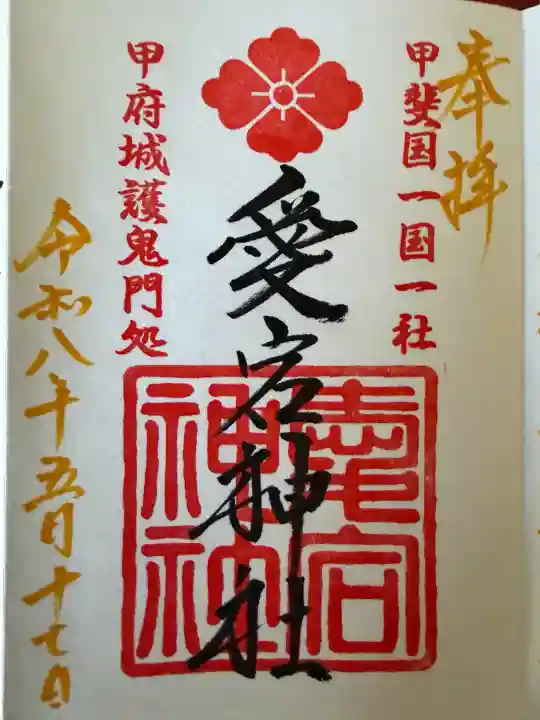 奉拝
甲斐国一国一社
愛宕神社
愛宕神社
甲府城護鬼門処
令和八年五月十七日